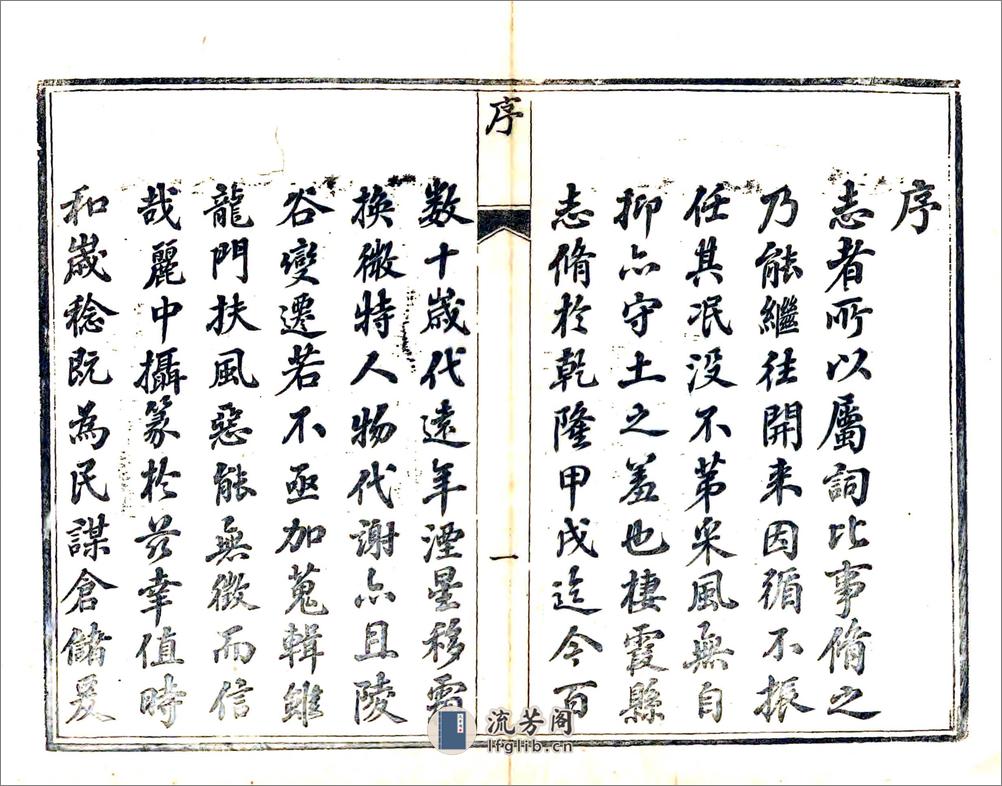 序
志者所以屬詞比事脩之
乃能繼往開来因循不振
任其泯没不第采風無自
抑亦守土之羞也棲霞縣
志脩於乾隆甲戌迄今百
序
一
数十歲代遠年湮星移
換微特人物代謝亦且陵
谷變遷若不亟加蒐輯雖
龍門扶風惡能無徵而信
哉麗中攝篆於兹幸值時
和歲稔既為民謀倉儲爰
流芳阁
lfglib.cn